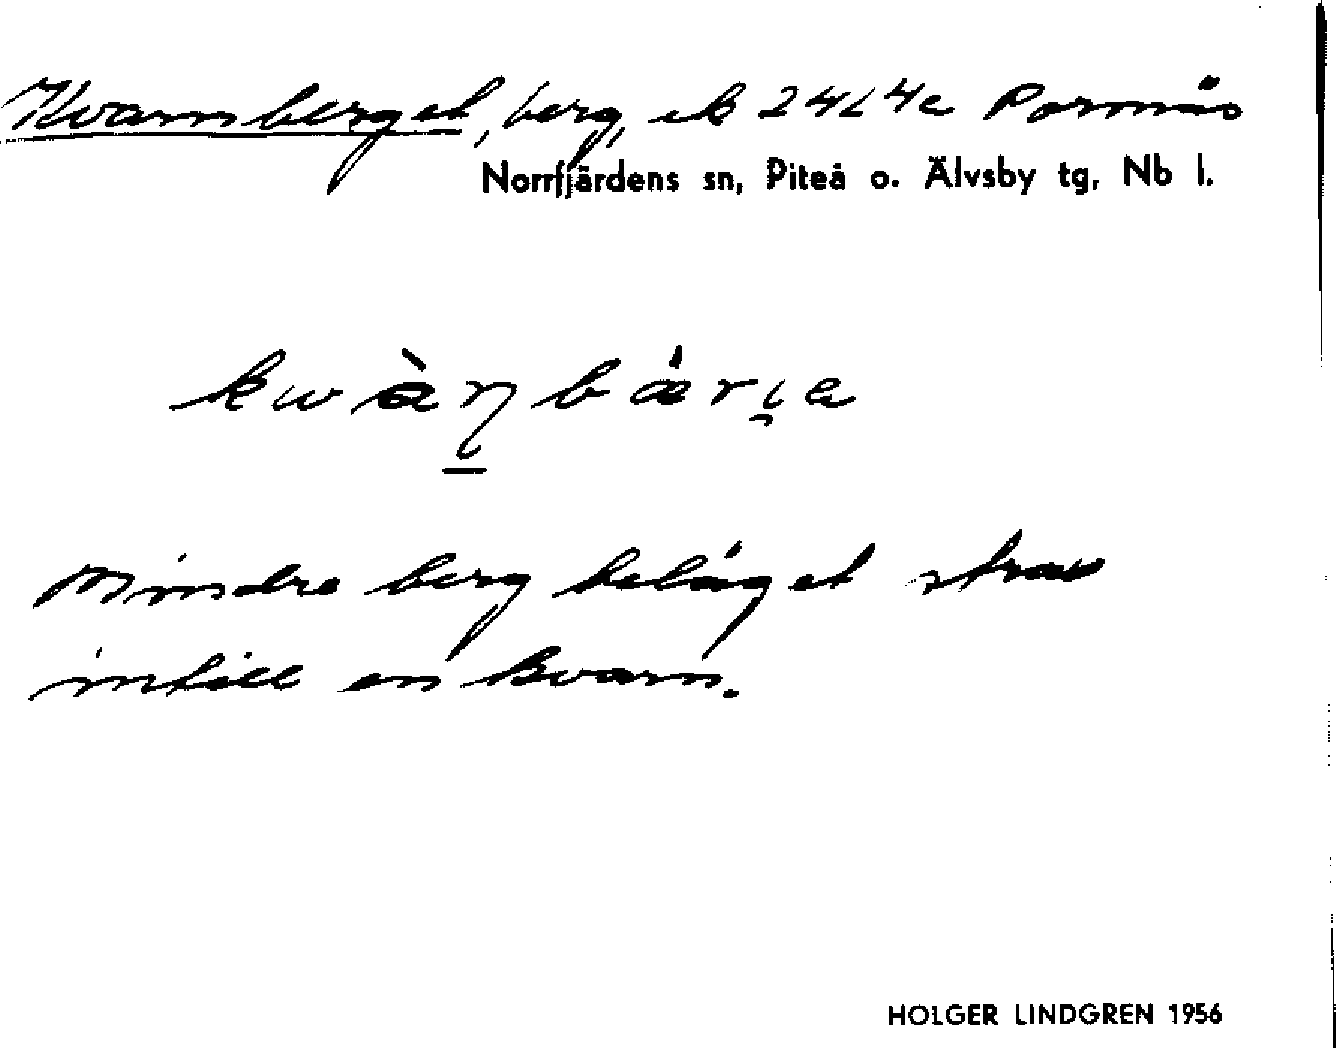 Kvarnberget, berg, ek 24L4e Porsnäs
Norrfjärdens sn, Piteå o. Älvsby tg, Nb l.
Mindre berg beläget strax
intill en kvarn.
HOLGER LINDGREN 1956